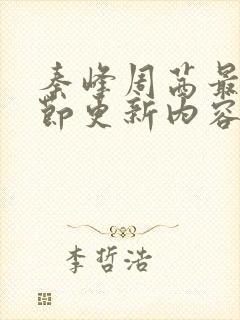 秦峰周茜最
节更新内容
李哲浩